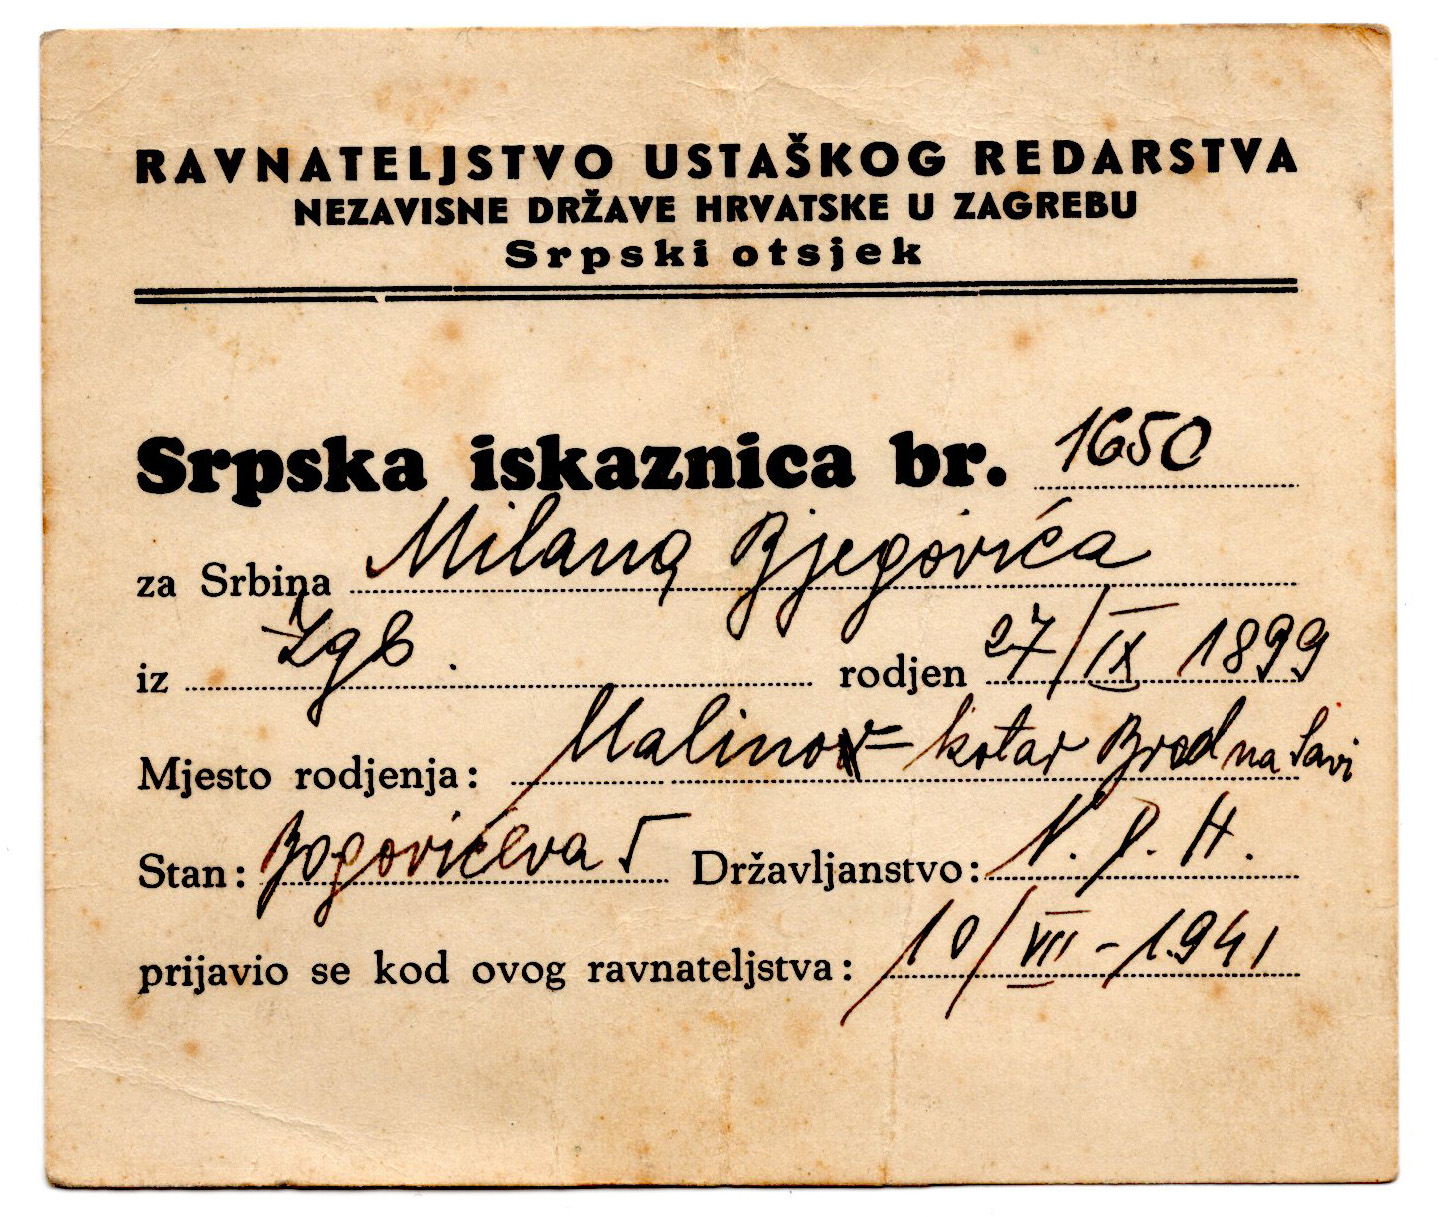 RAVNATELJSTVO USTAŠKOG REDARSTVA
NEZAVISNE DRŽAVE HRVATSKE U ZAGREBU
Srpski otsjek
Srpska iskaznica br. 1650
za Srbina Milana Bjegovića
iz Zgb. rodjen 27/IX 1899
Mjesto rodjenja: Malino = kotar Brod na Savi
Stan: Bogovićeva 5 Državljanstvo: N. D. H.
prijavio se kod ovog ravnateljstva: 10/VII - 1941